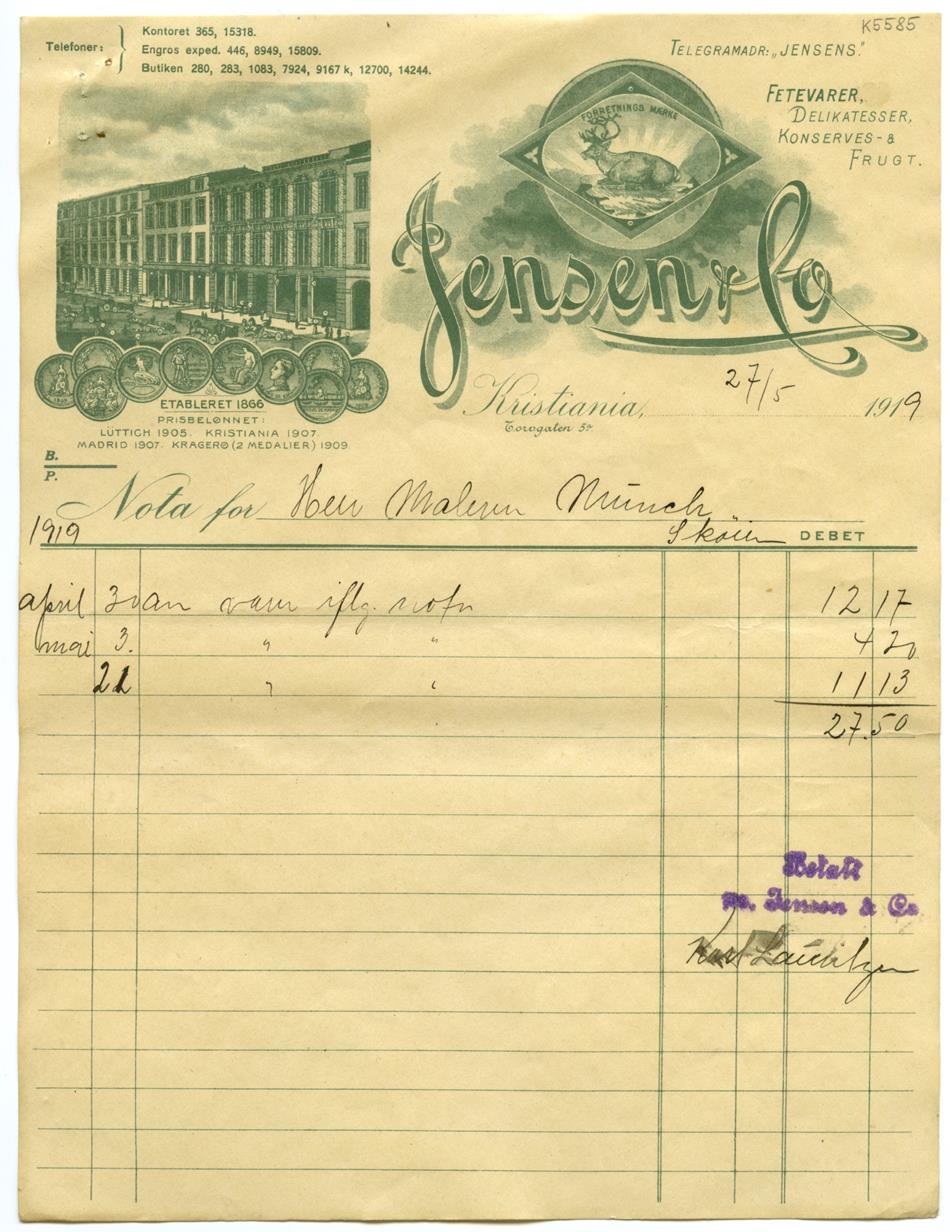 K5585
Telefoner:
Kontoret 365, 15318.
Engros exped. 446, 8949, 15809.
Butiken 280, 283, 1083, 7924, 9167 k, 12700, 14244.
TELEGRAMADR: „JENSENS."
FETEVARER,
DELIKATESSER,
KONSERVES- &
FRUGT.
FORRETNINGS MÆRKE
Jensen & Co
ETABLERET 1866
PRISBELØNNET:
LÜTTICH 1905. KRISTIANIA 1907.
MADRID 1907. KRAGERØ (2 MEDALIER) 1909.
Kristiania, 27/5 1919
Torvgaten 5
B.
P.
Nota for Herr Maleren Münch
1919 Skøien DEBET
april 30 an varer iflg. nota 12 17
mai 3. " " 4 20
22 " " 11 13
27.50
Betalt
pr. Jensen & Co
Karl Lauritzen